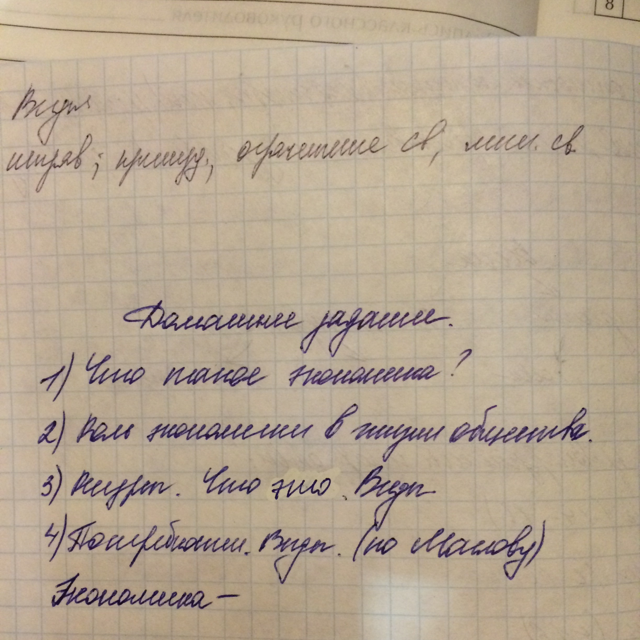 Виды
исправ; принуд., ограничение св, лиш. св.
Домашнее задание.
1) Что такое экономика?
2) Роль экономики в жизни общества.
3) Ресурсы. Что это. Виды
4) Потребности. Виды. (по Маслову)
Экономика –